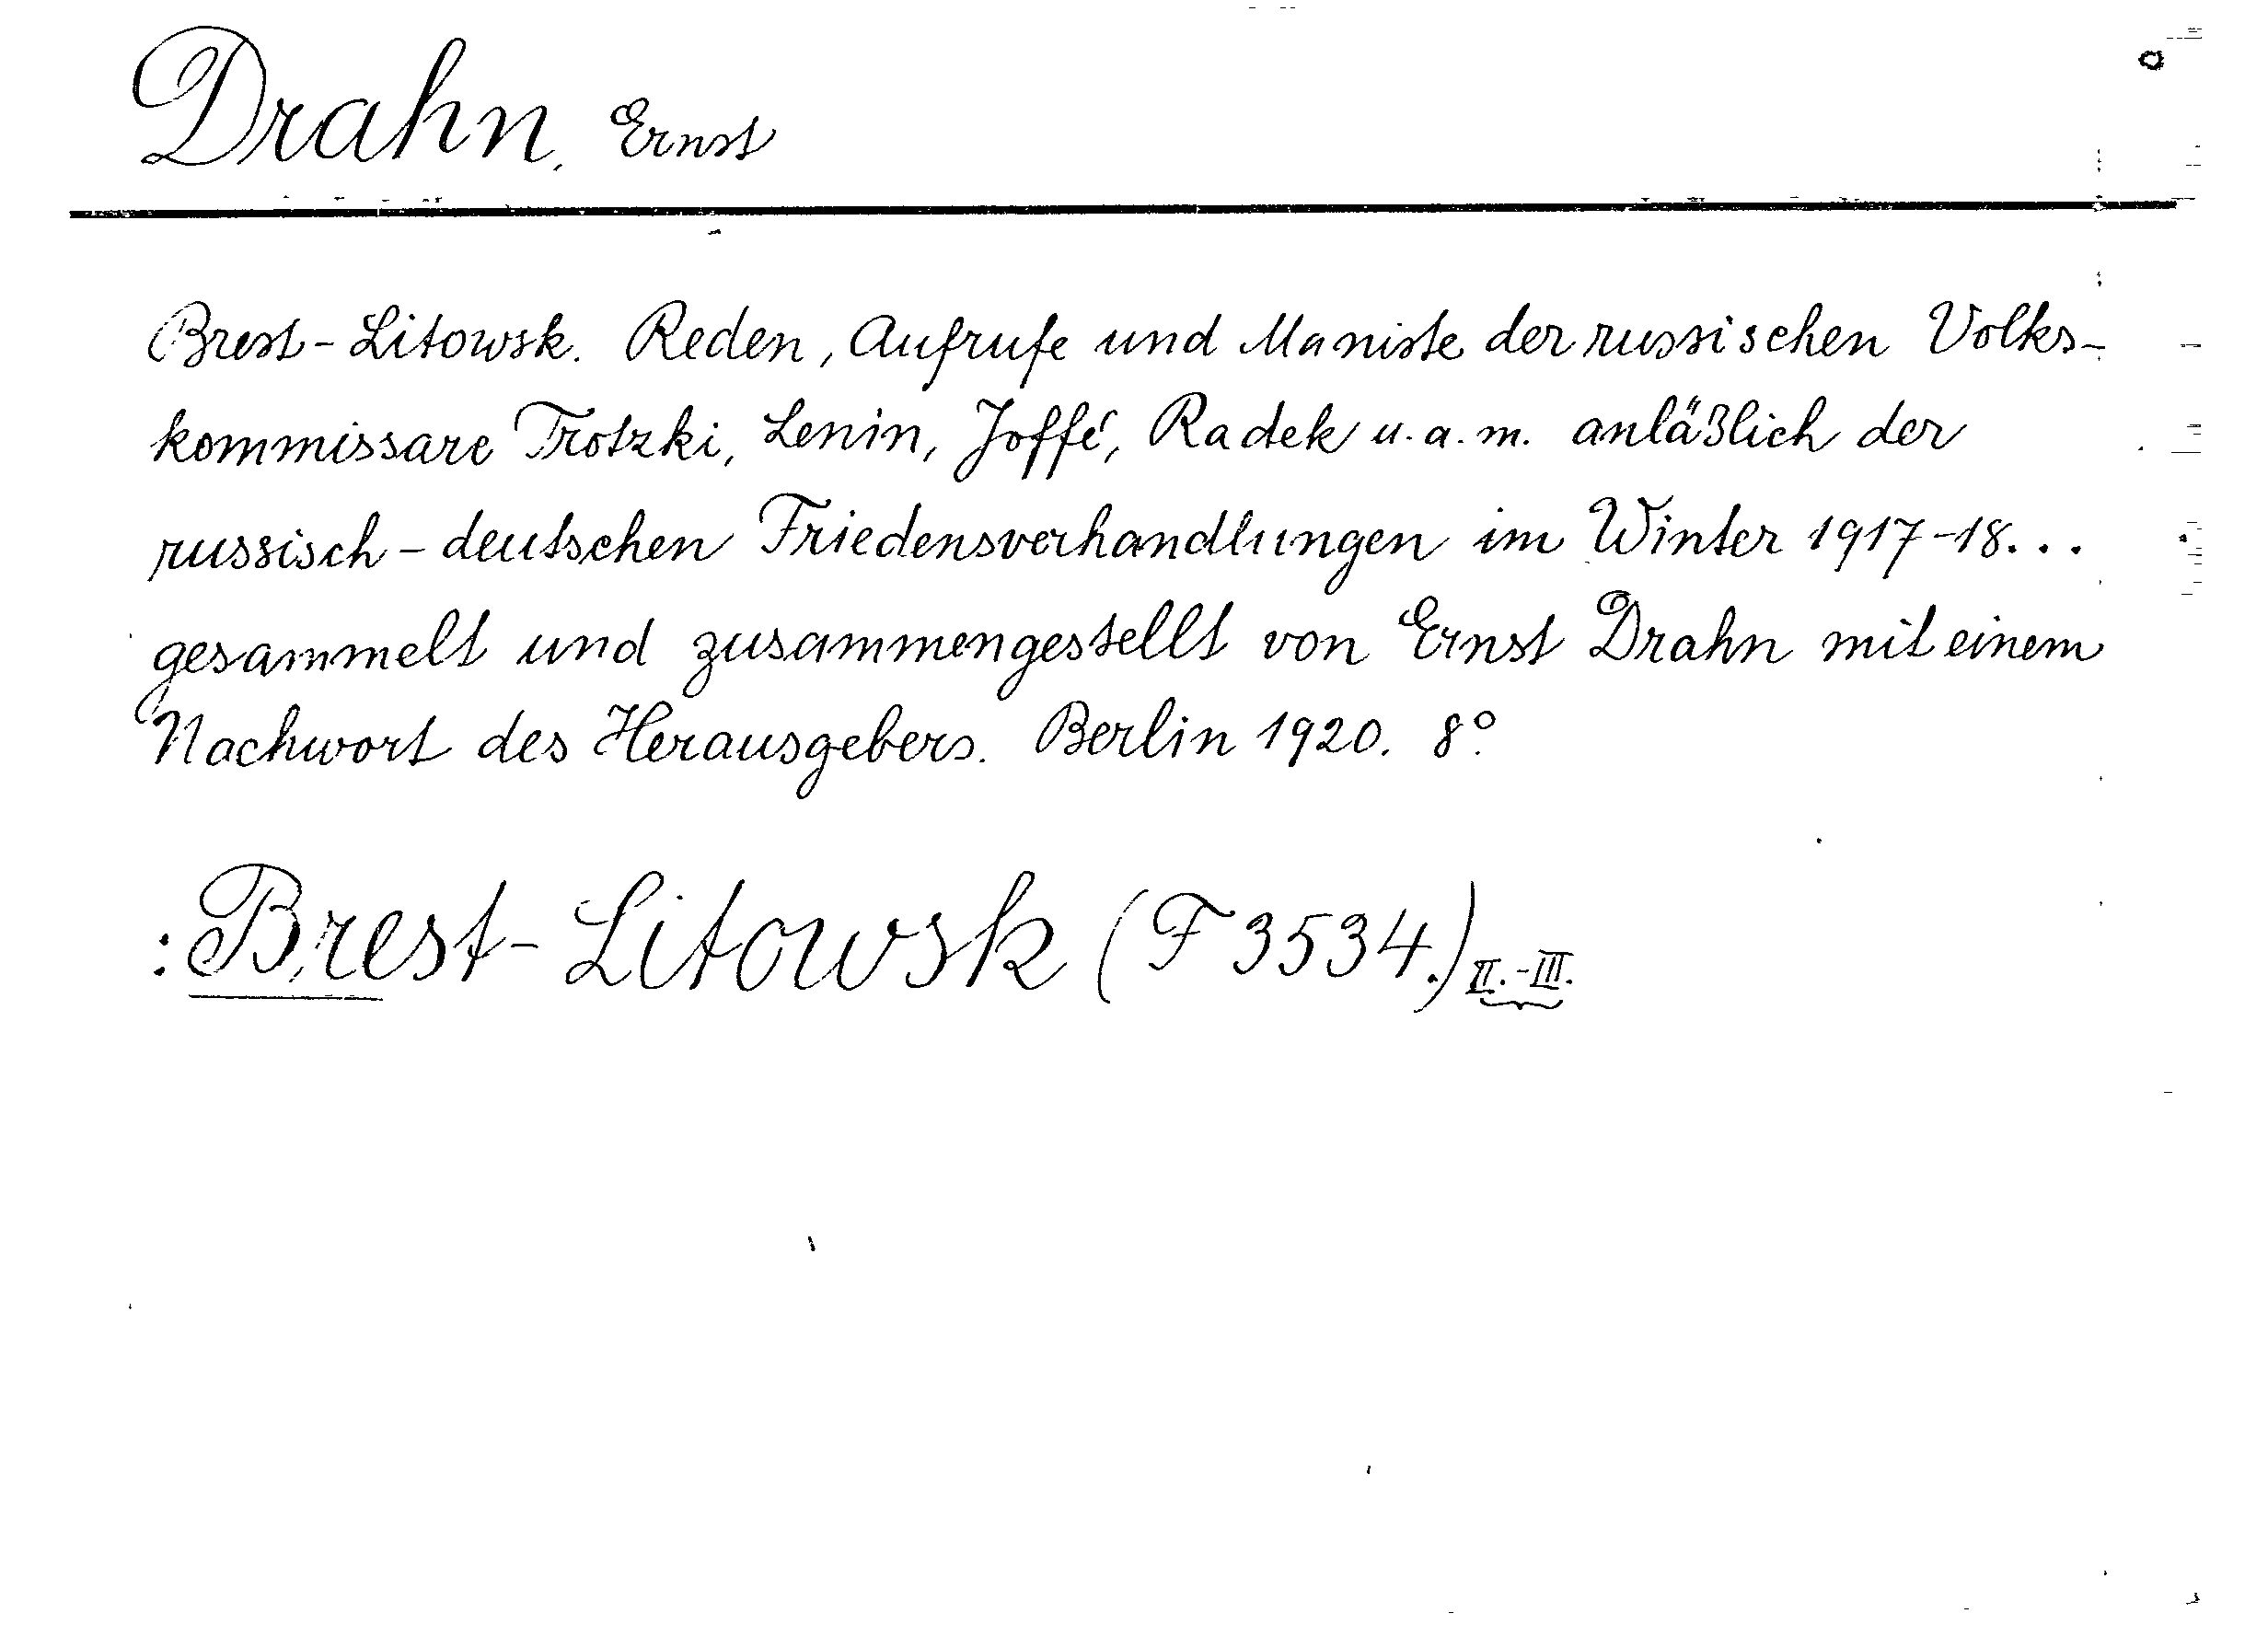 Drahn, Ernst
Brest-Litowsk. Reden, Aufrufe und Maniste der russischen Volks-
kommissare Trotzki, Lenin, Joffé, Radek u. a. m. anläßlich der
russisch-deutschen Friedensverhandlungen im Winter 1917-18...
gesammelt und zusammengestellt von Ernst Drahn mit einem
Nachwort des Herausgebers. Berlin 1920. 8°.
: Brest-Litowsk (F 3534.) II.-III.